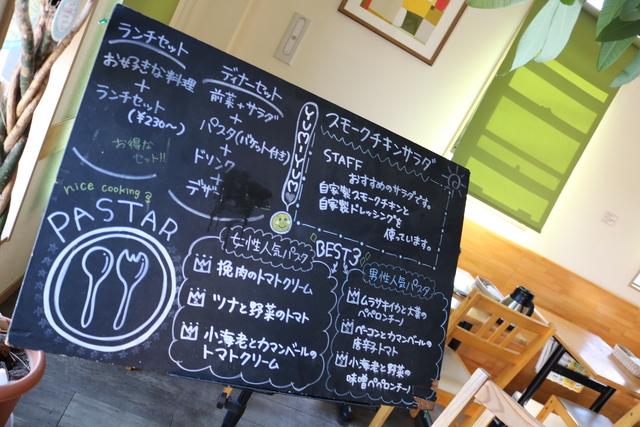 ランチセット
お好きな料理
+
ランチセット
(¥230〜)
お得な
セット!!
ディナーセット
前菜+サラダ
+
パスタ(バケット付き)
+
ドリンク
+
デザート
YUM! YUM
スモークチキンサラダ
STAFF
おすすめのサラダです。
自家製スモークチキンと
自家製ドレッシングを
使っています。
nice cooking
PASTAR
BEST3
女性人気パスタ
挽肉のトマトクリーム
ツナと野菜のトマト
小海老とカマンベールの
トマトクリーム
男性人気パスタ
ムラサキイカと大葉の
ペペロンチーノ
ベーコンとカマンベールの
唐辛子トマト
小海老と野菜の
味噌ペペロンチーノ